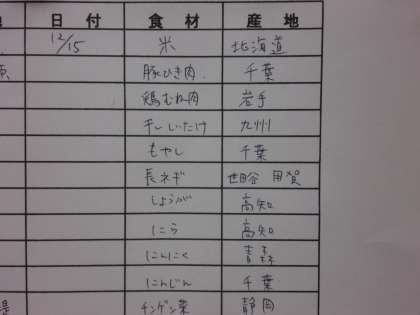 日付 食材 産地
12/15 米 北海道
豚ひき肉 千葉
鶏むね肉 岩手
干ししいたけ 九州
もやし 千葉
長ネギ 世田谷 用賀
しょうが 高知
にら 高知
にんにく 青森
にんじん 千葉
チンゲン菜 静岡